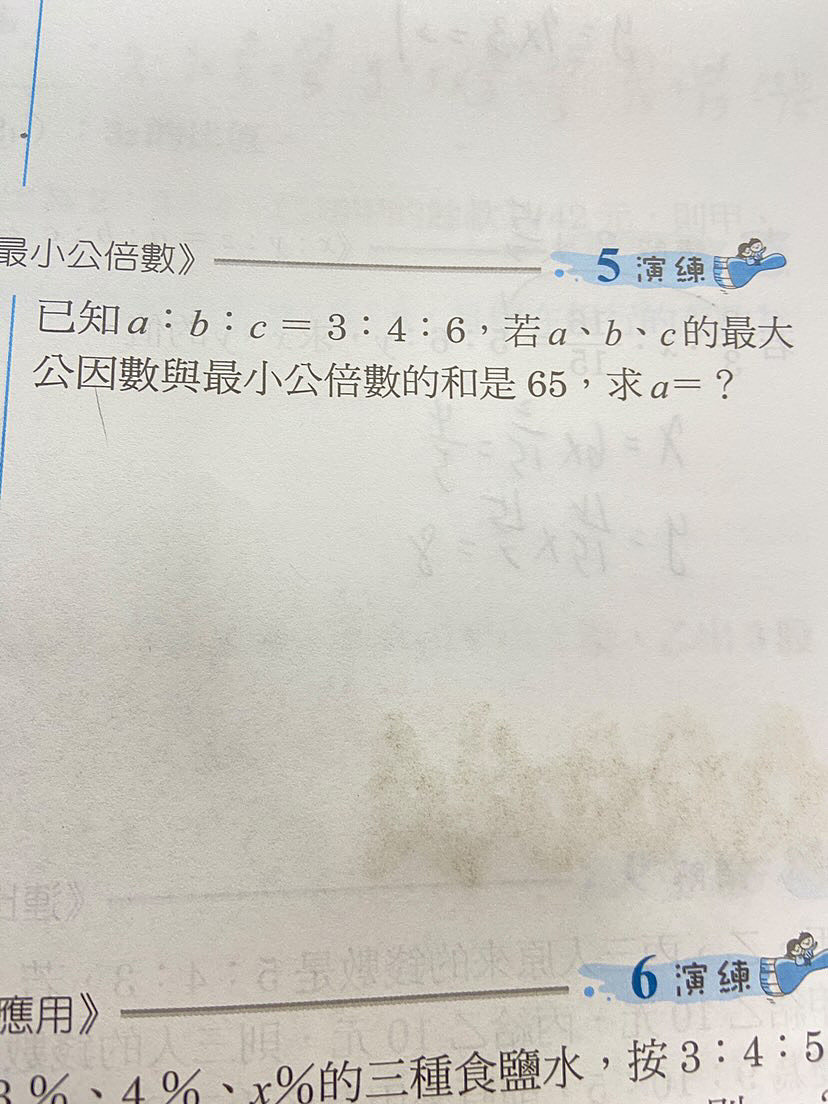 最小公倍數》
5 演練
已知a：b：c＝3：4：6，若a、b、c的最大
公因數與最小公倍數的和是65，求a＝？
6 演練
應用》
3%、4%、x%的三種食鹽水，按3：4：5